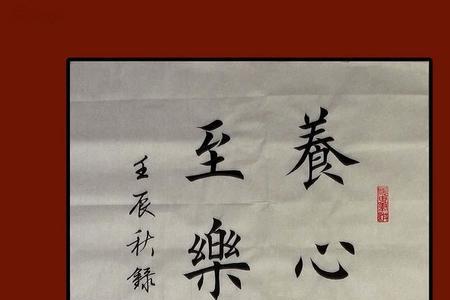 養心
至樂
壬辰秋錄